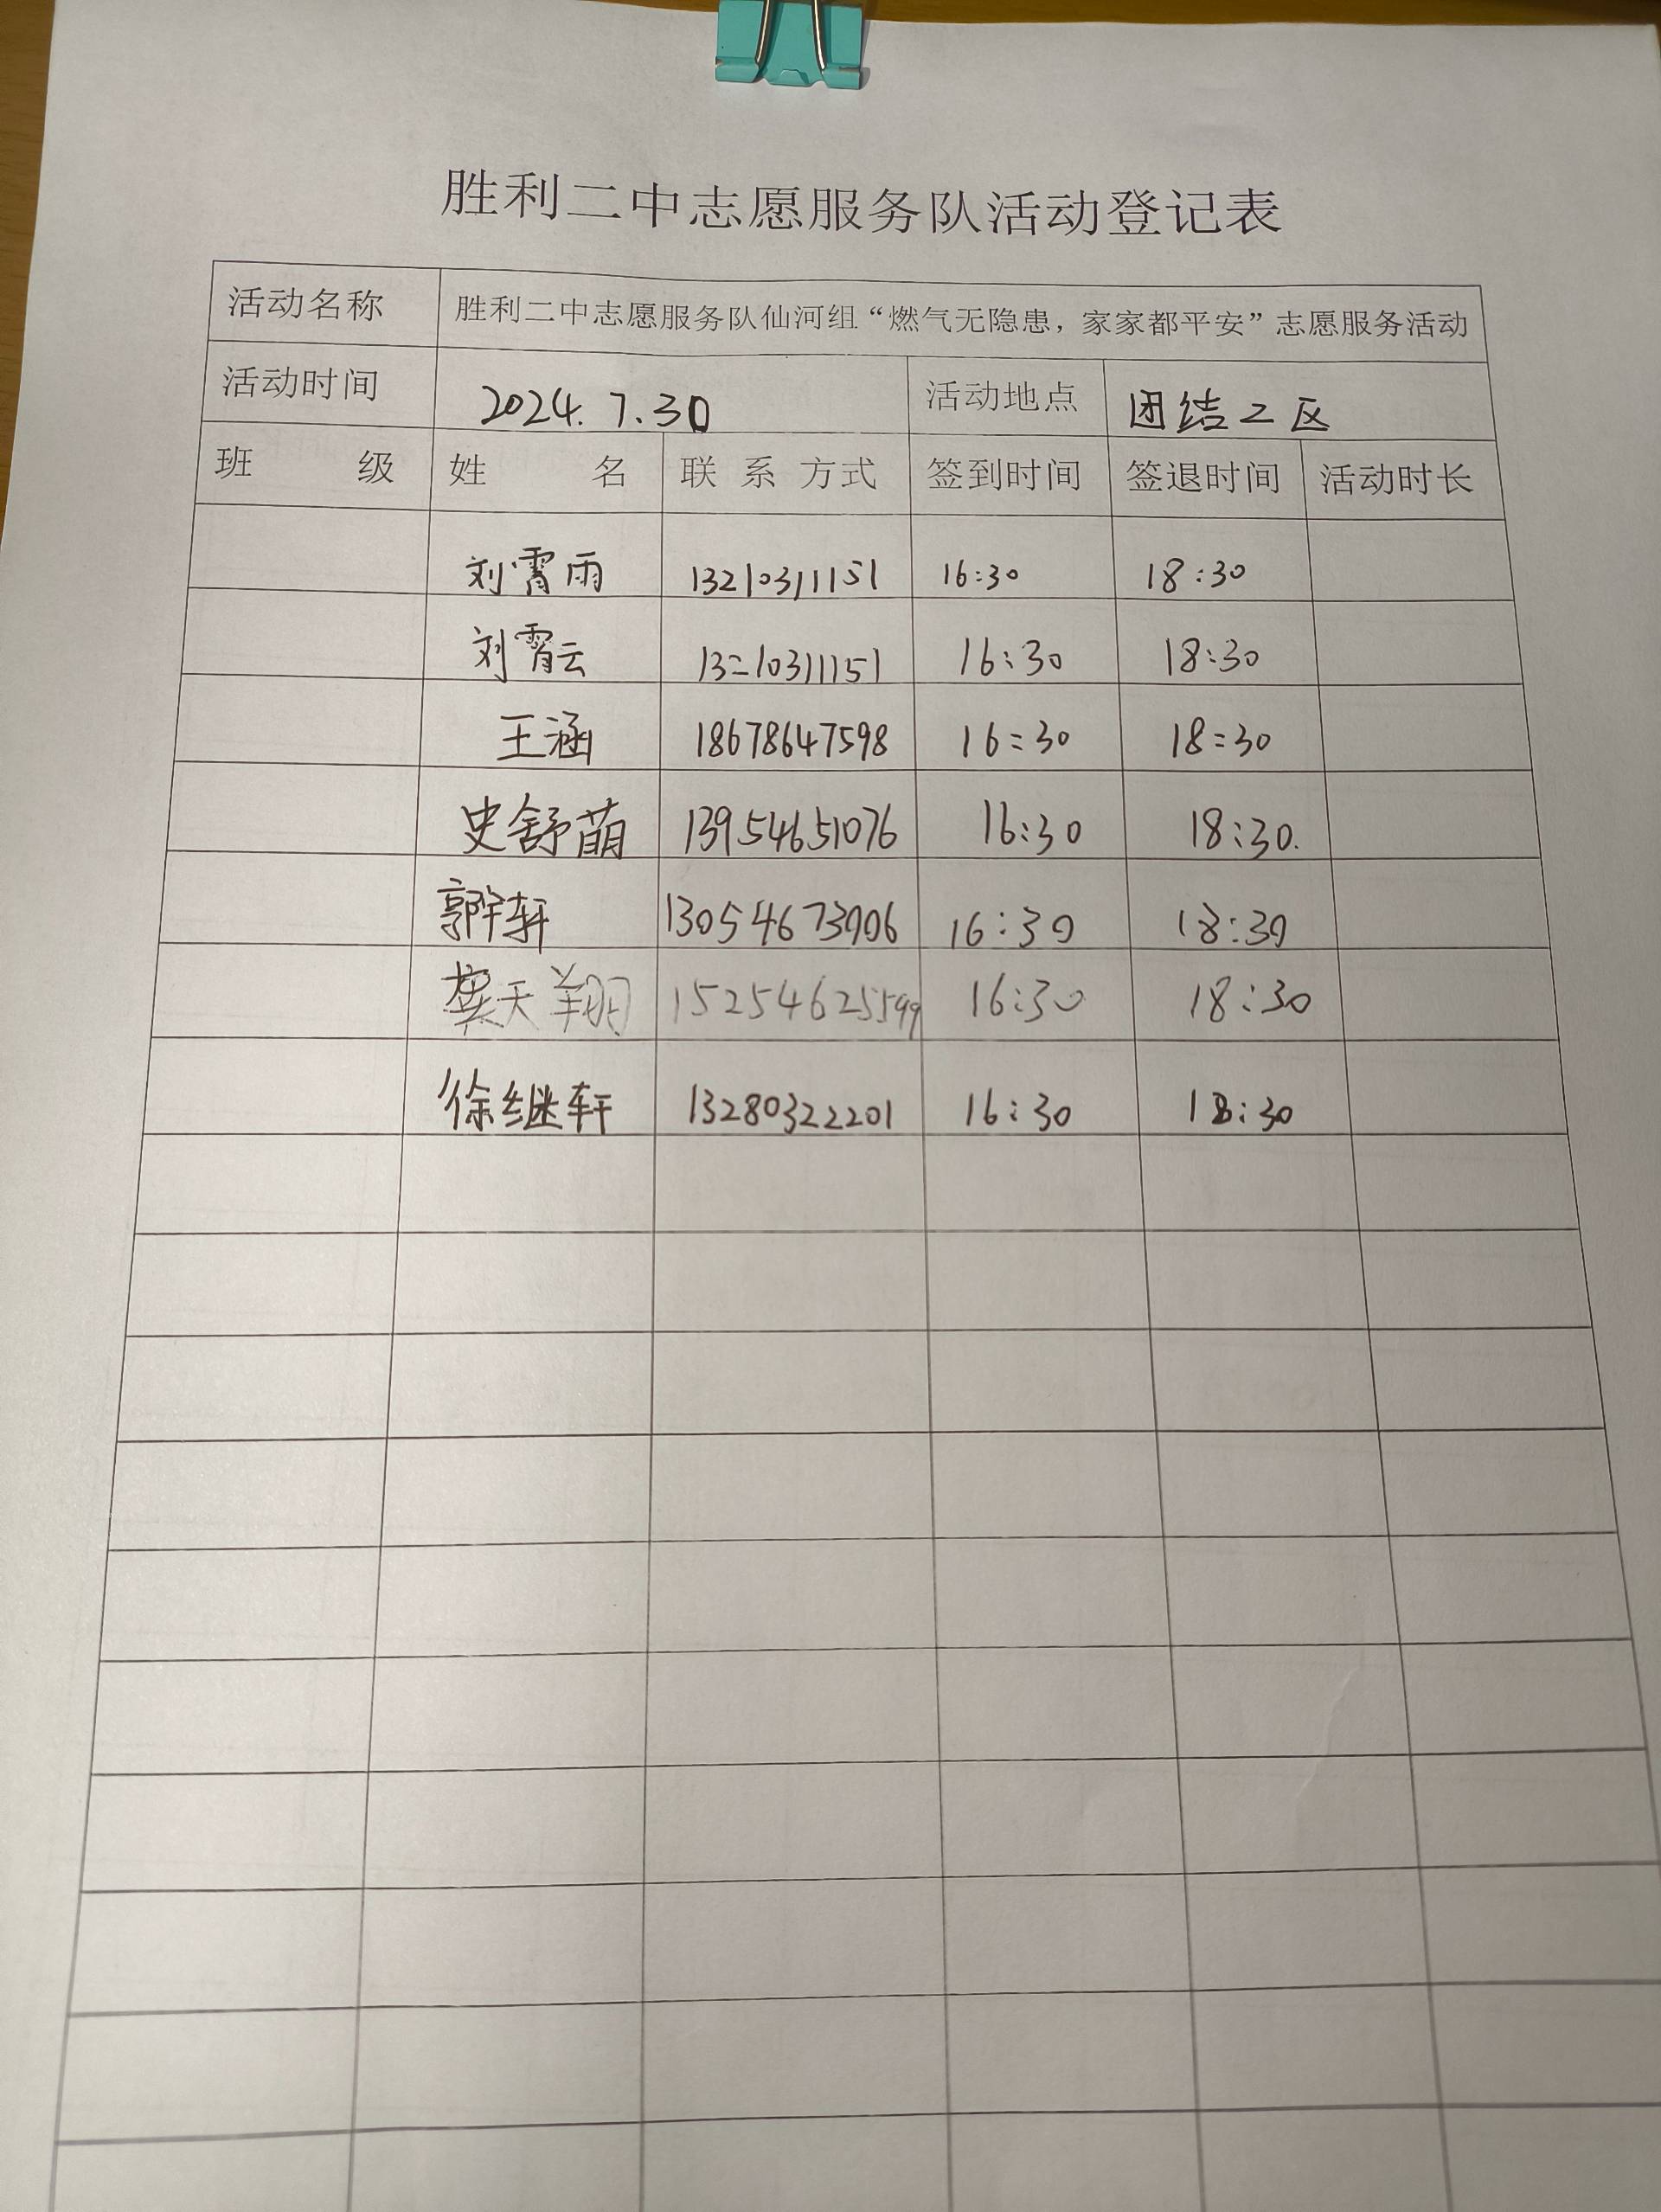 胜利二中志愿服务队活动登记表
活动名称 胜利二中志愿服务队仙河组“燃气无隐患，家家都平安”志愿服务活动
活动时间 2024.7.30 活动地点 团结二区
班 级 姓 名 联 系 方式 签到时间 签退时间 活动时长
刘霄雨 13210311151 16:30 18:30
刘霄云 13210311151 16:30 18:30
王涵 18678647598 16:30 18:30
史舒萌 13954651076 16:30 18:30.
郭宇轩 13054673906 16:30 18:30
龚天翔 15254625599 16:30 18:30
徐继轩 13280322201 16:30 18:30